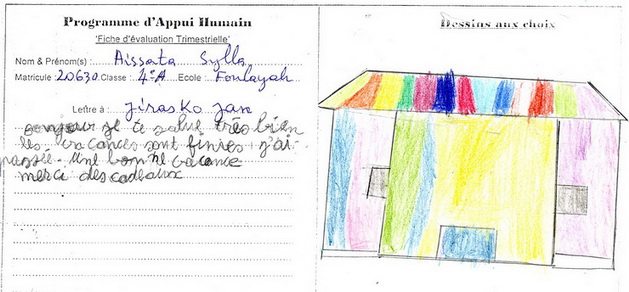 Programme d'Appui Humain
'Fiche d'évaluation Trimestrielle'
Nom & Prénom(s) : Aïssata Sylla
Matricule : 20630 Classe : 4e A Ecole : Foulayah
Lettre à : Jirasko Jan
Bonjour je te salue très bien
les vacances sont finies j'ai
passée une bonne vacance
merci des cadeaux
Dessins aux choix